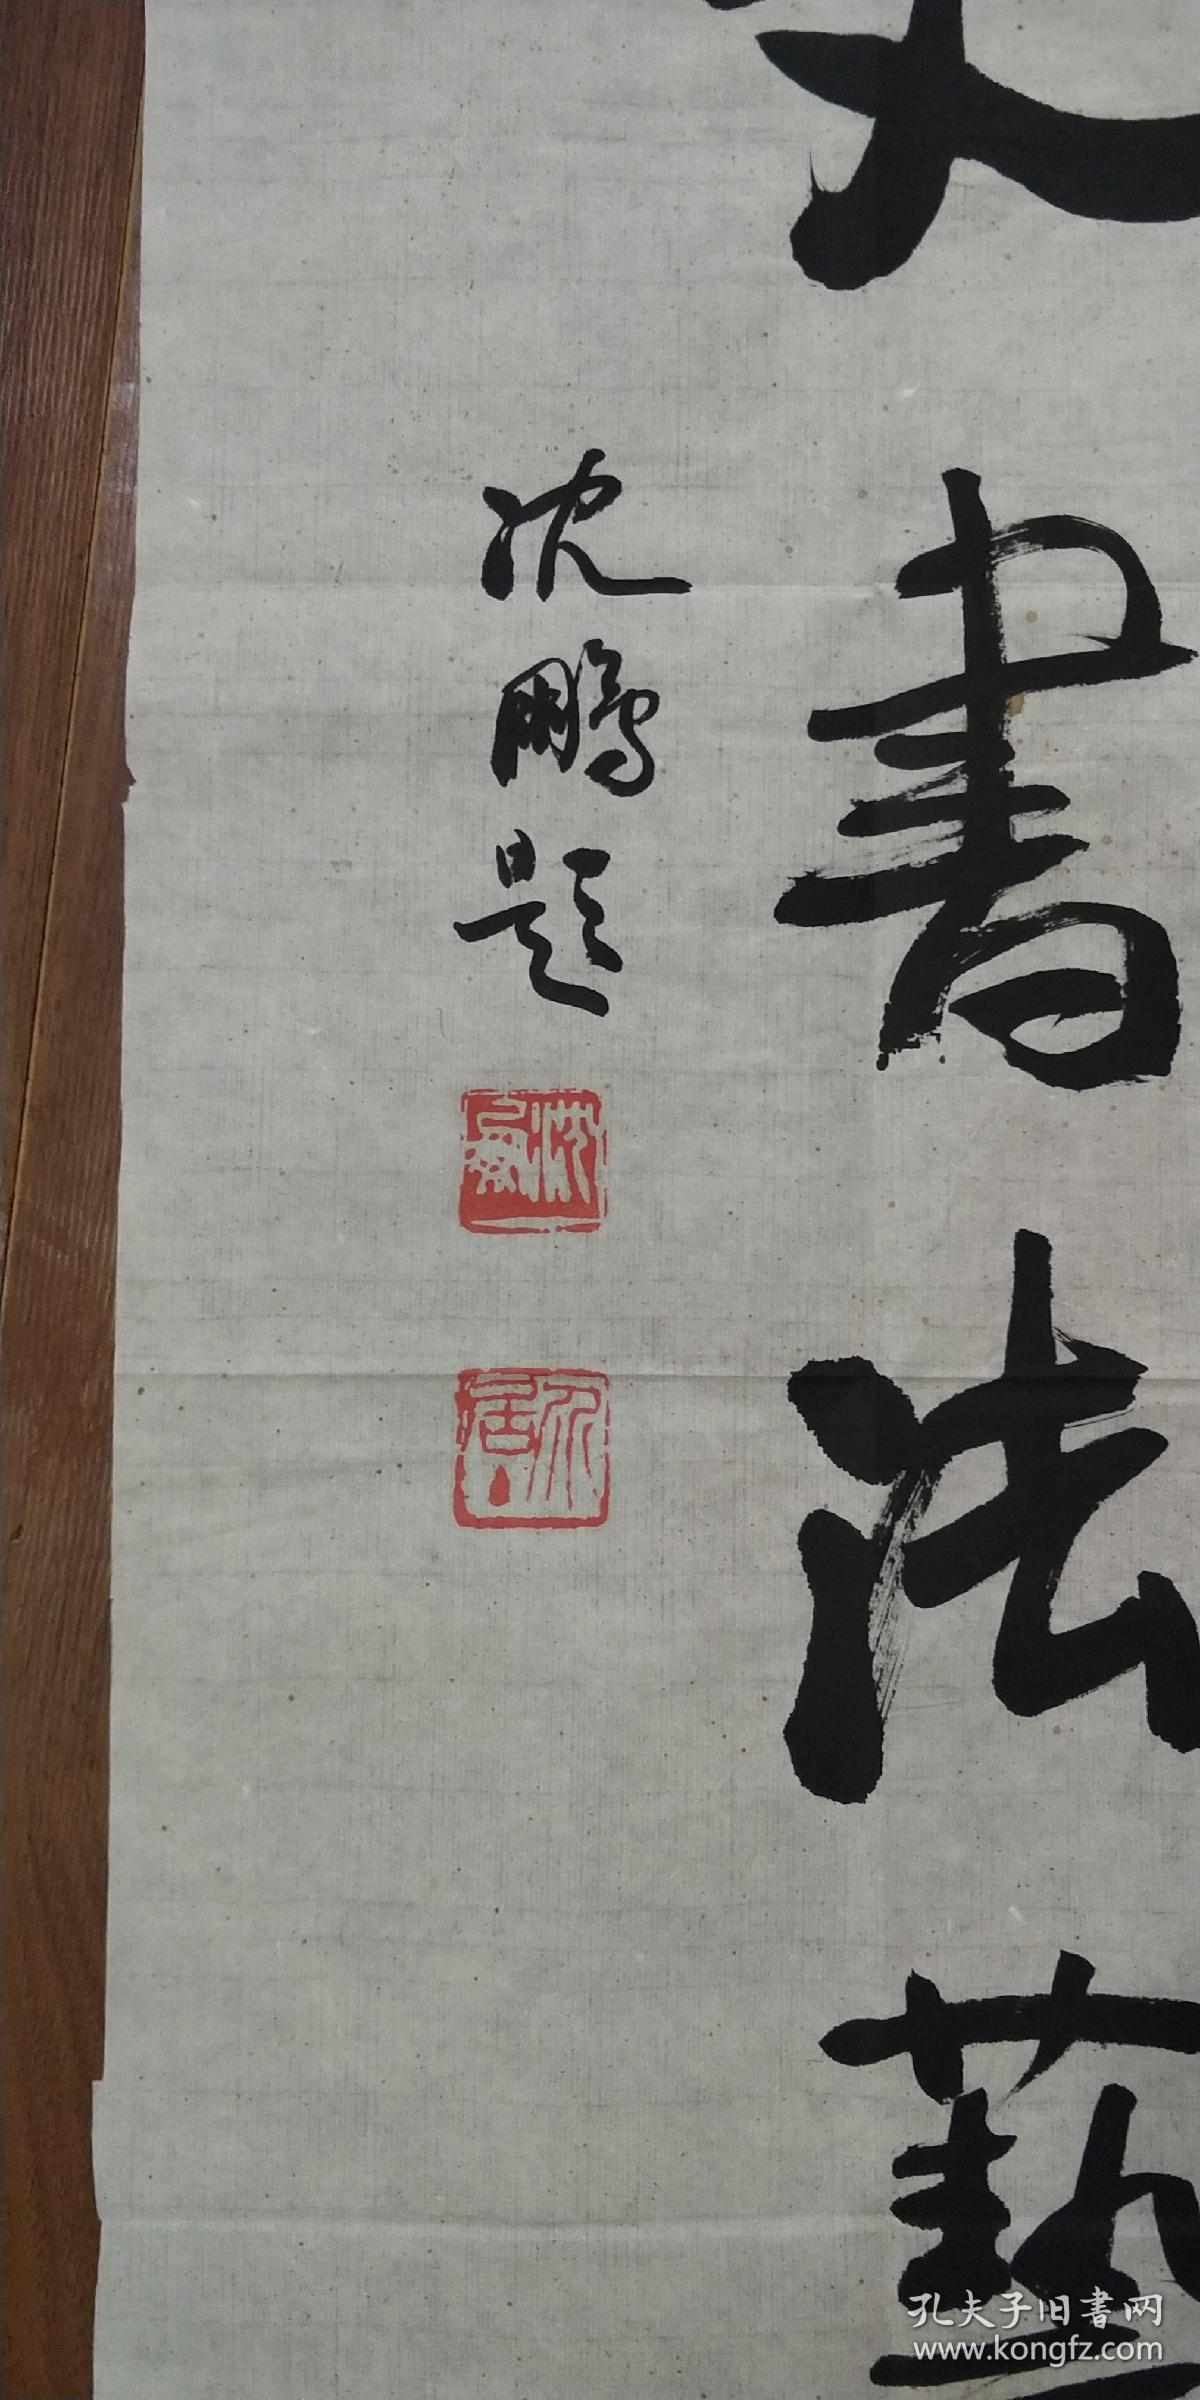 書法藝
沈鵬題
孔夫子旧書网
www.kongfz.com